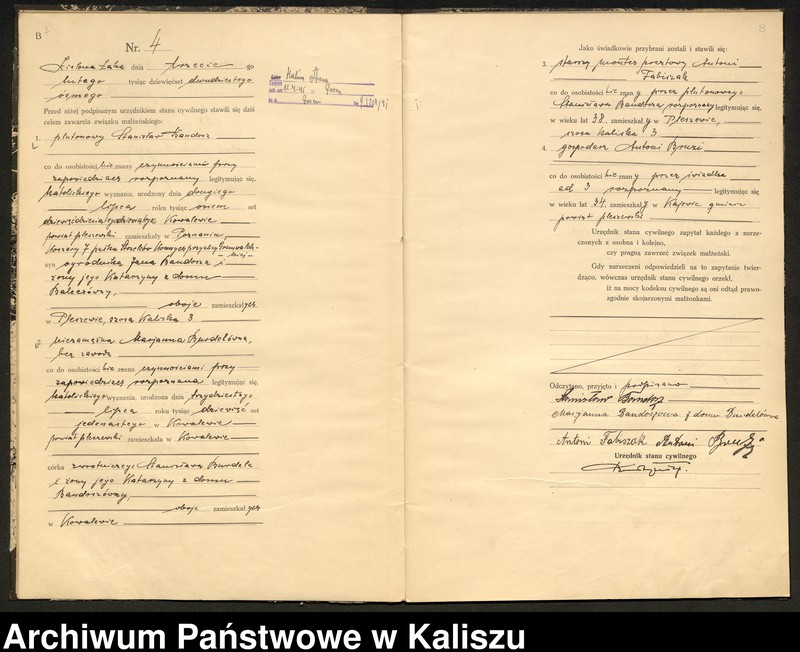 B
Nr. 4
Zielona Łąka dnia trzeciego
lutego tysiąc dziewięćset dwudziestego
ósmego
Przed niżej podpisanym urzędnikiem stanu cywilnego stawili się dziś
celem zawarcia związku małżeńskiego:
1. plutonowy Stanisław Bandosz
co do osobistości nie znany czynnościami przy
zapowiedziach rozpoznany legitymując się,
katolickiego wyznania, urodzony dnia drugiego
lipca roku tysiąc osiem set
dziewięćdziesiątego dziewiątego Kowalewie
powiat pleszewski zamieszkały w Poznaniu,
koszary 7 pułku Strzelców Konnych przy ulicy Grunwaldz-
kiej
syn ogrodnika Jana Bandosza i
żony jego Katarzyny z domu
Balcerówny,
oboje zamieszkałych
w Pleszewie, szosa Kaliska 3
2. niezamężna Marjanna Burdelówna,
bez zawodu
co do osobistości nie znana czynnościami przy
zapowiedziach rozpoznana legitymując się,
katolickiego wyznania, urodzona dnia trzydziestego
lipca roku tysiąc dziewięć set
jedenastego w Kowalewie
powiat pleszewski zamieszkała w Kowalewie
córka zwrotniczego Stanisława Burdela
i żony jego Katarzyny z domu
Bandoszówny,
oboje zamieszkałych
w Kowalewie
8
Jako świadkowie przybrani zostali i stawili się:
3. starszy monter pocztowy Antoni
Fabiszak
co do osobistości nie znany przez plutonowego
Stanisława Bandosza rozpoznany legitymując się,
w wieku lat 28, zamieszkały w Pleszewie,
szosa kaliska 3
4. gospodarz Antoni Bruzi
co do osobistości nie znany przez świadka
ad 3 rozpoznany legitymując się
w wieku lat 34, zamieszkały w Kajewie gmina
powiat pleszewski
Urzędnik stanu cywilnego zapytał każdego z narze-
czonych z osobna i kolejno,
czy pragną zawrzeć związek małżeński.
Gdy narzeczeni odpowiedzieli na to zapytanie twier-
dząco, wówczas urzędnik stanu cywilnego orzekł,
iż na mocy kodeksu cywilnego są oni odtąd prawo-
zgodnie skojarzonymi małżonkami.
Odczytano, przyjęto i podpisano
Stanisław Bandosz
Marjanna Bandoszowa z domu Burdelówna
Antoni Fabiszak Antoni Bruzi
Urzędnik stanu cywilnego
Archiwum Państwowe w Kaliszu